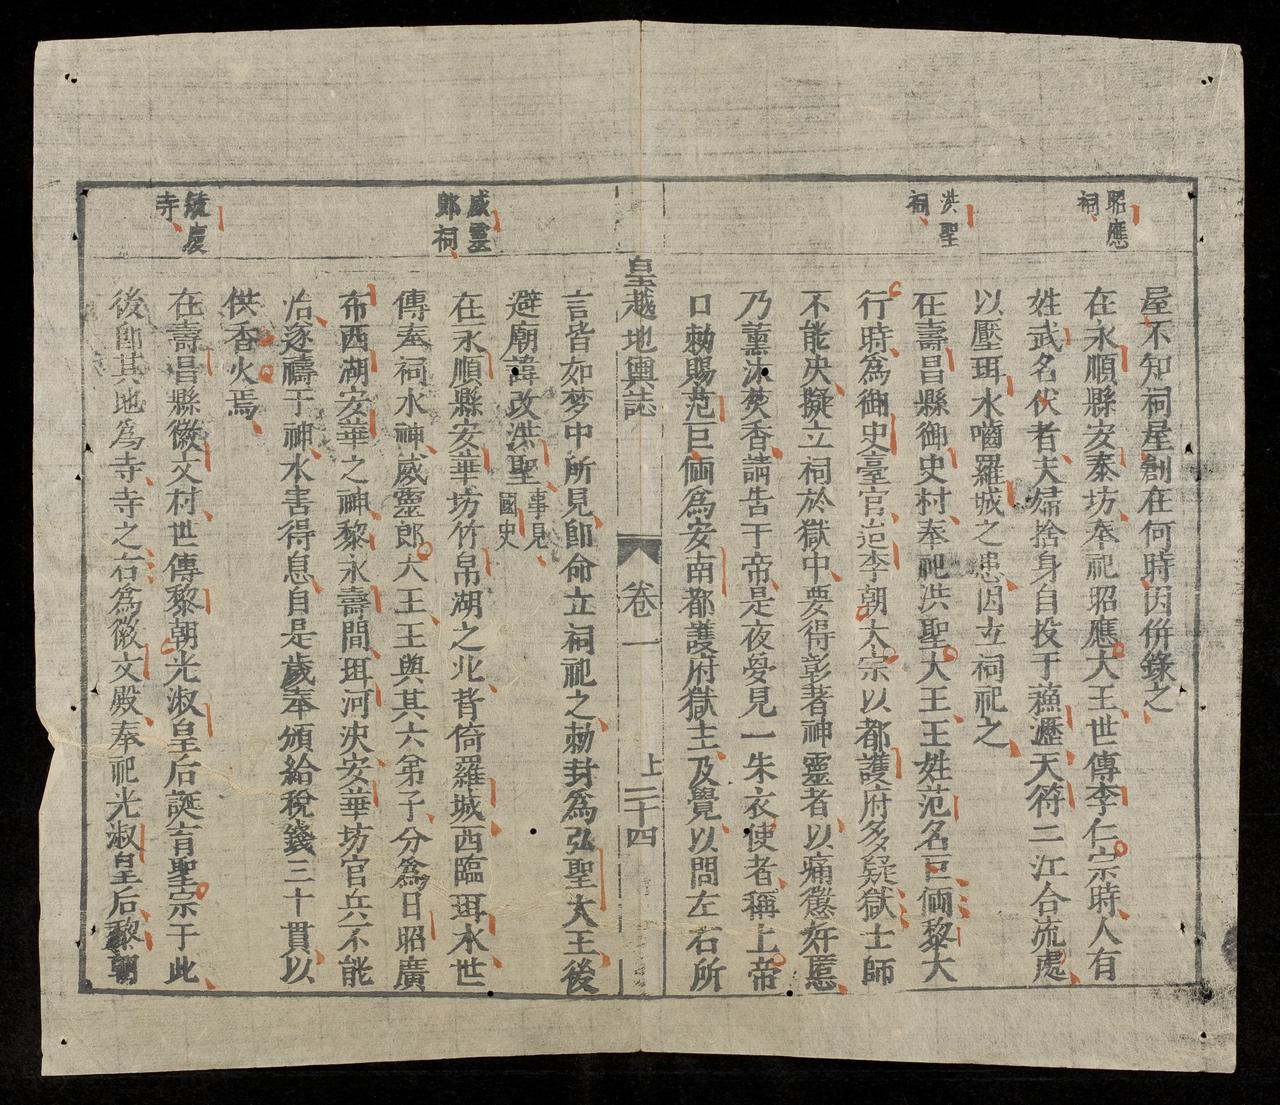 昭應
祠
屋不知祠屋創在何時因併錄之
在永順縣安泰坊奉祀昭應大王世傳李仁宗時人有
姓武名伏者夫婦捨身自投于蘓瀝天符二江合流處
以壓珥水嚙羅城之患因立祠祀之
洪聖
祠
在壽昌縣御史村奉祀洪聖大王王姓范名巨倆黎大
行時爲御史臺官迨李朝太宗以都護府多疑獄士師
不能决擬立祠於獄中要得彰著神靈者以痛懲奸慝
乃薰沐焚香請告于帝是夜夢見一朱衣使者稱上帝
口勅賜范巨倆爲安南都護府獄主及覺以問左右所
皇越地輿誌
卷一
上二十四
言皆如梦中所見卽命立祠祀之勅封爲弘聖大王後
避廟諱改洪聖
事見
國史
威靈
郎祠
在永順縣安華坊竹帛湖之北背倚羅城西臨珥水世
傳奉祠水神威靈郎大王王與其六弟子分爲日昭廣
布西湖安華之神黎永壽間珥河决安華坊官兵不能
治逐禱于神水害得息自是歲奉頒給稅錢三十貫以
供香火焉
慶
寺
在壽昌縣徽文村世傳黎朝光淑皇后誕育聖宗于此
後卽其地爲寺寺之右爲徽文殿奉祀光淑皇后黎朝